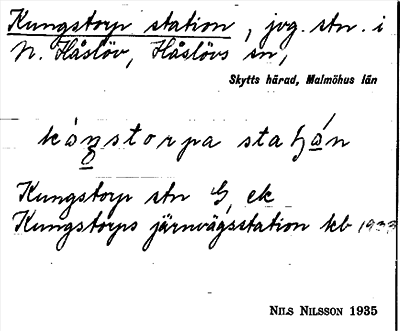 Kungstorp station, jvg. stn. i
N. Håslöv, Håslövs sn,
Skytts härad, Malmöhus län
Kungstorp stn G, ek
Kungstorps järnvägsstation kb 1933
NILS NILSSON 1935